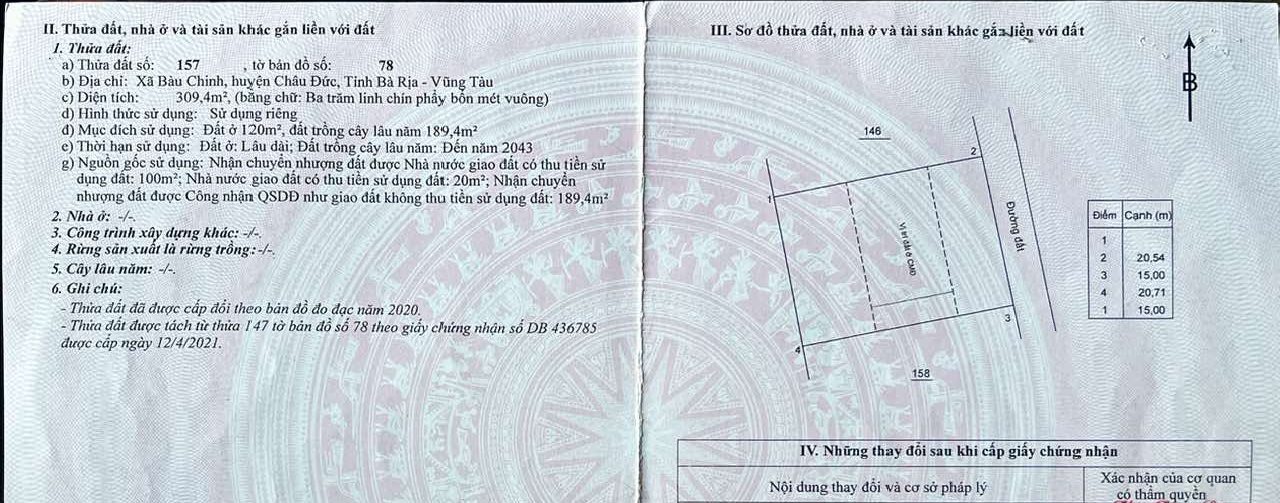 II. Thửa đất, nhà ở và tài sản khác gắn liền với đất
1. Thửa đất:
a) Thửa đất số: 157 , tờ bản đồ số: 78
b) Địa chỉ: Xã Bàu Chinh, huyện Châu Đức, Tỉnh Bà Rịa - Vũng Tàu
c) Diện tích: 309,4m², (bằng chữ: Ba trăm linh chín phẩy bốn mét vuông)
d) Hình thức sử dụng: Sử dụng riêng
đ) Mục đích sử dụng: Đất ở 120m², đất trồng cây lâu năm 189,4m²
e) Thời hạn sử dụng: Đất ở: Lâu dài; Đất trồng cây lâu năm: Đến năm 2043
g) Nguồn gốc sử dụng: Nhận chuyển nhượng đất được Nhà nước giao đất có thu tiền sử
dụng đất: 100m²; Nhà nước giao đất có thu tiền sử dụng đất: 20m²; Nhận chuyển
nhượng đất được Công nhận QSDĐ như giao đất không thu tiền sử dụng đất: 189,4m²
2. Nhà ở: -/-.
3. Công trình xây dựng khác: -/-.
4. Rừng sản xuất là rừng trồng: -/-.
5. Cây lâu năm: -/-.
6. Ghi chú:
- Thửa đất đã được cấp đổi theo bản đồ đo đạc năm 2020.
- Thửa đất được tách từ thửa 147 tờ bản đồ số 78 theo giấy chứng nhận số DB 436785
được cấp ngày 12/4/2021.
III. Sơ đồ thửa đất, nhà ở và tài sản khác gắn liền với đất
B
146
1
2
Đường đất
Vị trí đất ở
3
4
158
Điểm Cạnh (m)
1
2 20,54
3 15,00
4 20,71
1 15,00
IV. Những thay đổi sau khi cấp giấy chứng nhận
Nội dung thay đổi và cơ sở pháp lý
Xác nhận của cơ quan
có thẩm quyền